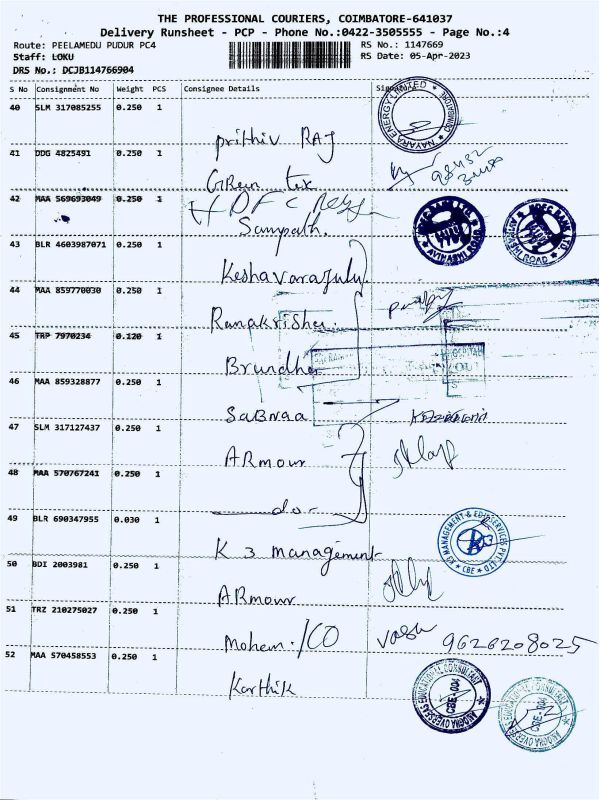 THE PROFESSIONAL COURIERS, COIMBATORE-641037
Delivery Runsheet - PCP - Phone No.:0422-3505555 - Page No.:4
Route: PEELAMEDU PUDUR PC4 RS No.: 1147669
Staff: LOKU RS Date: 05-Apr-2023
DRS No.: DCJB114766904
S No Consignment No Weight PCS Consignee Details
40 SLM 317085255 0.250 1
NAYARA ENERGY LIMITED
prithiv RAJ
41 DDG 4825491 0.250 1
Green tex
42 MAA 569693049 0.250 1
HDFC
Sampath.
HDFC BANK LTD. AVINASHI ROAD
HDFC BANK LTD. AVINASHI ROAD
43 BLR 4603987071 0.250 1
Keshavarajulu
44 MAA 859770030 0.250 1
Ramakrishna
45 TRP 7970234 0.120 1
Brundha
46 MAA 859328877 0.250 1
SaBnaa
47 SLM 317127437 0.250 1
ARmour
48 MAA 570767241 0.250 1
do-
49 BLR 690347955 0.030 1
K3 MANAGEMENT & EDU SERVICES PVT LTD CBE
K 3 management
50 BDI 2003981 0.250 1
ARmour
51 TRZ 210275027 0.250 1
Mohem. /CO vasu 9626208025
52 MAA 570458553 0.250 1
Karthik
OVERSEAS EDUCATIONAL CONSULTANT CBE-004
OVERSEAS EDUCATIONAL CONSULTANT CBE-004